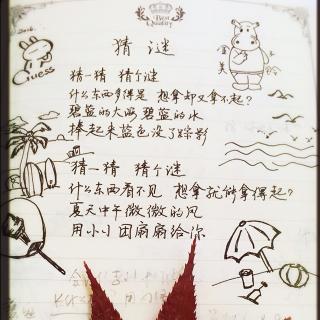 Best
Quality
2016.
Guess
猜 谜
猜一猜 猜个谜
什么东西多得是 想拿却又拿不起?
碧蓝的大海 碧蓝的水
捧起来蓝色没了踪影
猜一猜 猜个谜
什么东西看不见 想拿就能拿得起?
夏天中午微微的风
用小小团扇扇给你